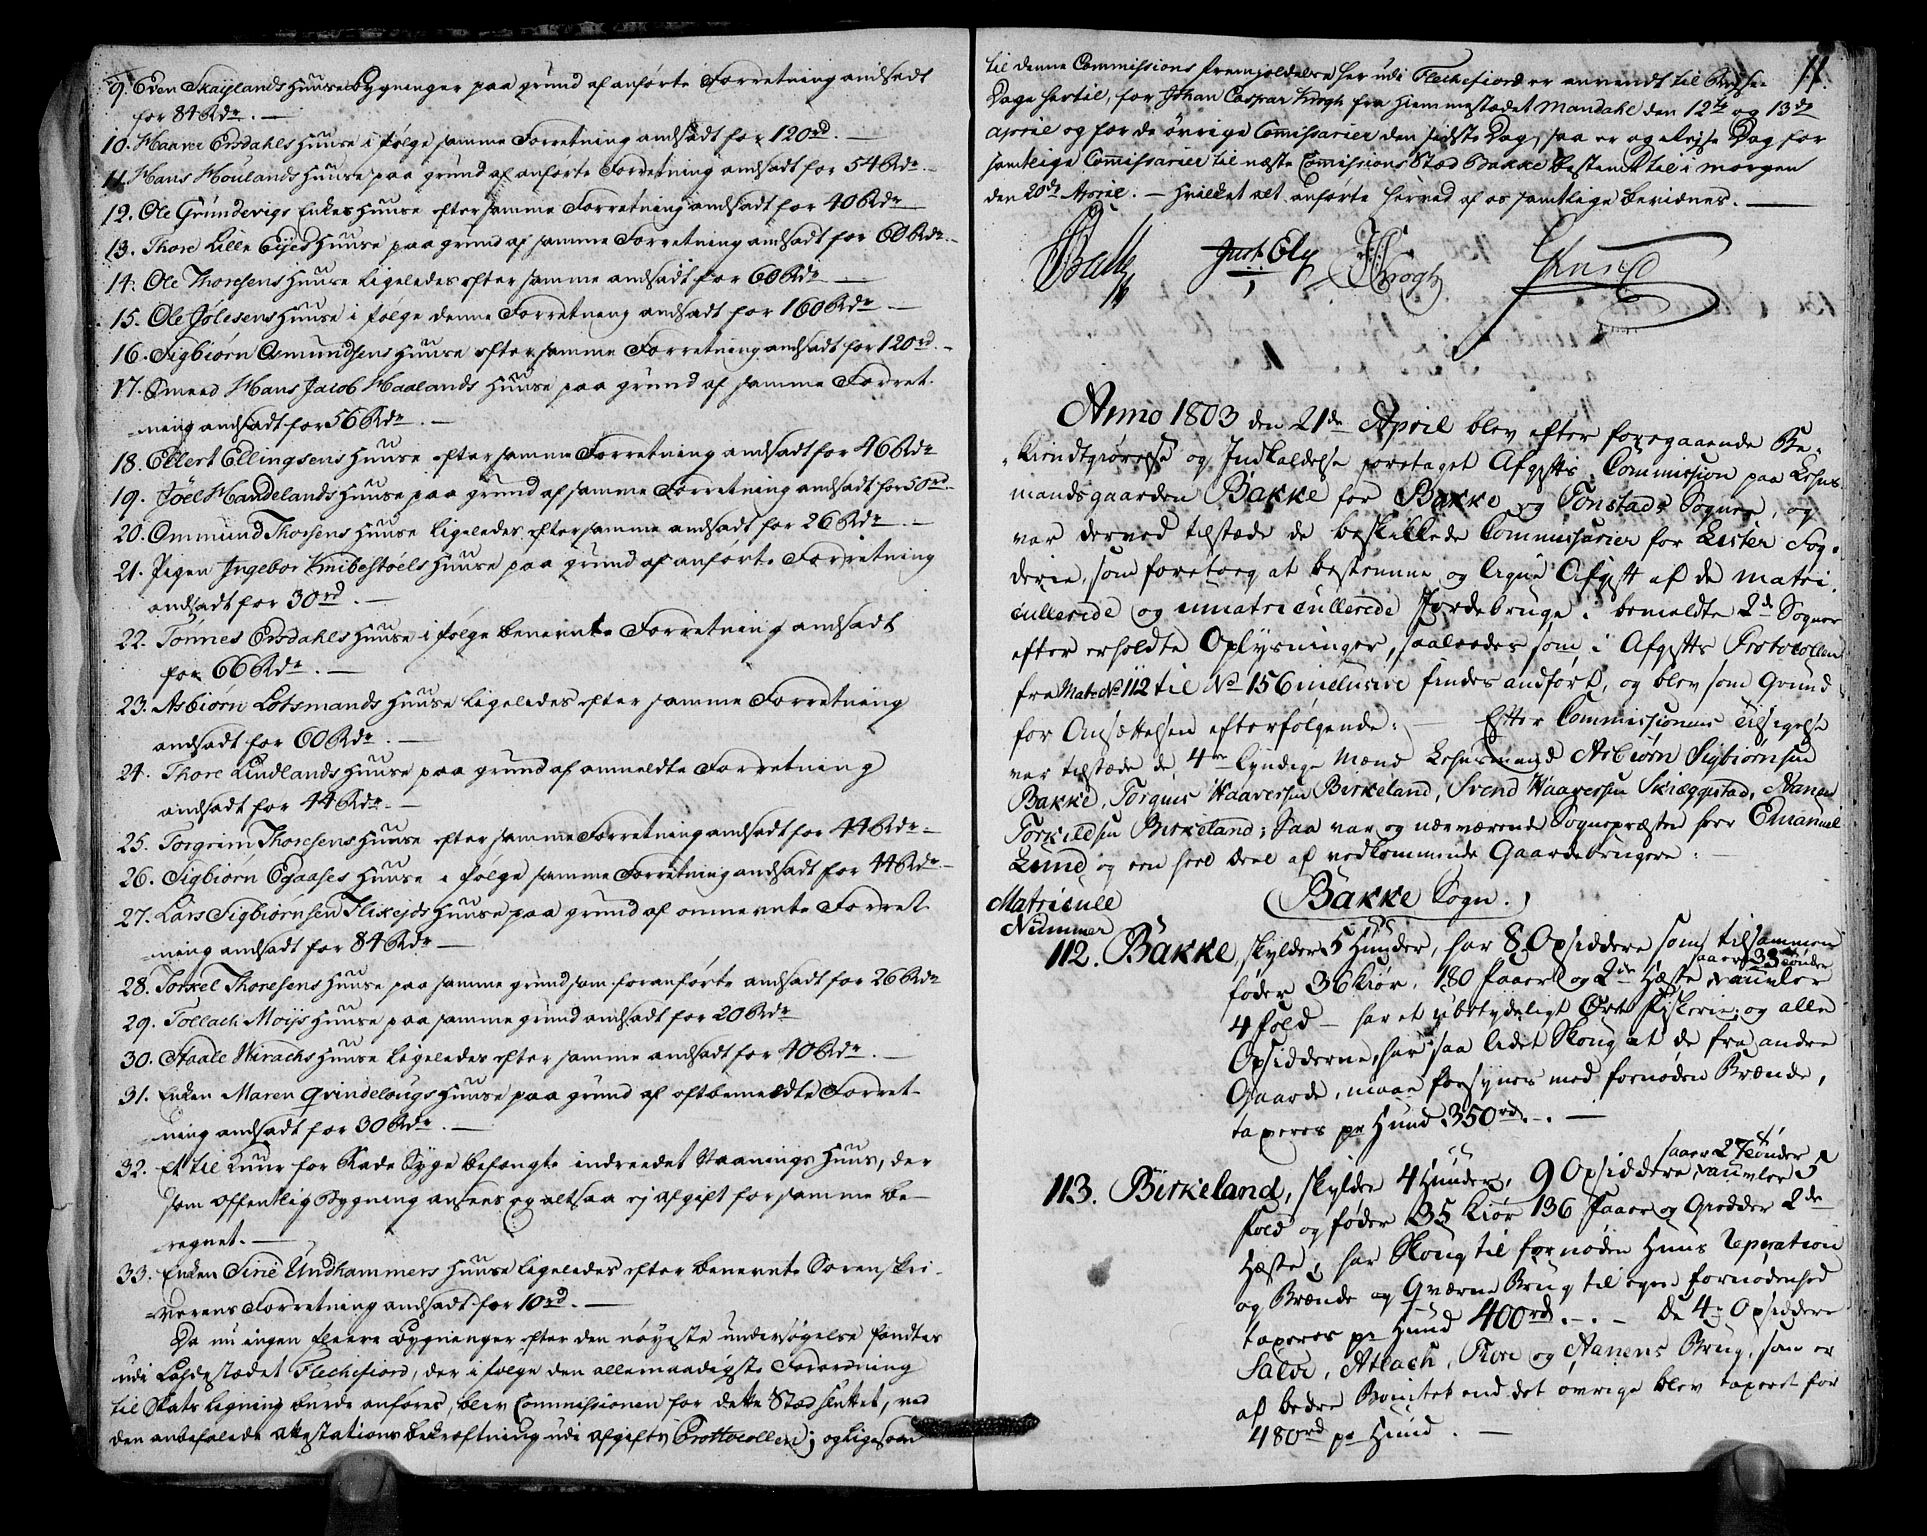 9. Eden Skaylands Huuse bygninger paa grund af anførte Forretning andsadt
for 84 Rdr. —
10. Haaver Ersdahls Huuse i følge samme Forretning andsadt for 120rd. —
11. Hans Houlands Huuse paa grund af anførte Forretning andsadt for 54 Rdr. —
12. Ole Grundevigs Enkes Huuse efter samme Forretning andsadt for 40 Rdr
13. Thore Lille Eyes Huuse paa grund af samme Forretning andsadt for 60 Rdr. —
14. Ole Thoresens Huuse ligeledes efter samme andsadt for 60 Rdr —
15. Ole Jølesens Huuse i følge denne Forretning andsadt for 160 Rdr —
16. Sigbiørn Omundsens Huuse efter samme Forretning andsadt for 120rd. —
17. Smeed Hans Jacob Haalands Huuse paa grund af samme Forret-
ning andsadt for 56 Rdr. —
18. Ellert Ellingsens Huuse efter samme Forretning andsadt for 46 Rdr
19. Joel Handelands Huuse paa grund af samme Forretning andsadt for 50rd. —
20. Ommund Thorsens Huuse ligeledes efter samme andsadt for 26 Rdr. —
21. Pigen Ingebor Knibestøels Huuse paa grund af anførte Forretning
andsadt for 30rd. —
22. Tønnes Ersdahls Huuse i følge benevnte Forretning andsadt
for 66 Rdr. —
23. Asbiørn Lotsmands Huuse ligeledes efter samme Forretning
andsadt for 60 Rdr. —
24. Thore Lindlands Huuse paa grund af anmeldte Forretning
andsadt for 44 Rdr. —
25. Torgrim Thoresens Huuse efter samme Forretning andsadt for 44 Rdr —
26. Sigbiørn Egaases Huuse i følge samme Forretning andsadt for 44 Rdr —
27. Lars Sigbiørnsen Flikejds Huuse paa grund af ommevnte Forret-
ning andsadt for 84 Rdr —
28. Torkel Thoresens Huuse paa samme grund som foranførte andsadt for 26 Rdr
29. Tollach Moijs Huuse paa samme grund andsadt for 20 Rdr
30. Staale Virachs Huuse ligeledes efter samme andsadt for 40 Rdr. —
31. Enken Maren Qvindelougs Huuse paa grund af oftbemeldte Forret-
ning andsadt for 30 Rdr. —
32. Et til Kuur for Rade Syge befængte indreedet Vaanings Huus, der
som offentlig Bygning ansees og altsaa ej afgift for samme be-
regnet. —
33. Enken Sirie Undhammers Huuse ligeledes efter benevnte Sorenskri-
verens Forretning andsadt for 10rd. —
Da nu ingen fleere bygninger efter den nøyeste undersøgelse fandtes
udi Ladestædet Flechefiord, der i følge den allernaadigste Forordning
til Skats ligning burde anføres, blev Commissionen for dette Stæd sluttet, ved
den anbefalede Attestations bekræftning udi Afgifts Prottocollen; og ligesom
11.
til denne Commissions fremholdelse her udi Flechefiord er anvendt til Reyse-
Dage hertil, for Johan Caspar Krogh fra Hiemmestædet Mandahl den 12te og 13de
April og for de øvrige Commissarier den sidste Dag, saa er og Reyse Dag for
samtlige Commissarier til næste Commissions Stæd Bakke bestemt til i morgen
den 20de April. — Hvilket alt anførte herved af os samtlige bevidnes. —
Just Ely JC Krogh
Anno 1803 den 21de April blev efter foregaaende Be-
kiendtgiørelse og Indkaldelse foretaget Afgifts Commission paa Lehns-
mandsgaarden Bakke for Bakke og Tonstads Sogner, og
var derved tilstæde de beskikkede Commissarier for Lister Fog-
derie, som foretoeg at bestemme og ligne Afgift af de matri-
cullerede og umatricullerede Jordebruge i bemeldte 2de Sogner
efter erholdte Oplysninger, saaledes som i Afgifts Protocollen
fra Matr No 112 til No 156 inclusive findes anført, og blev som Grund
for Ansættelsen efterfølgende: — Efter Commissionens Tilsigelse
var tilstæde de 4re kyndige Mænd Lehnsmand Asbiørn Sigbiørnsen
Bakke, Torgius Haaversen Birkeland, Svend Haaversen Skiæggestad, Nanen
Torkildsen Birkeland; Saa var og nærværende Sognepræsten Herr Emanuel
Lund og een heel deel af vedkommende Gaardebrugere:
Bakke Sogn.
Matricull
Nummer
112. Bakke, skylder 5 Hunder, har 8 Opsiddere som tilsammen
føder 36 kiør, 180 faarer og 2de Hæste saaer 33 tønder avler
4 fold — har et ubetydeligt Ørret Fiskerie, og alle
Opsidderne har saa lidet Skoug at de fra andre
Gaarde, maae forsynes med fornøden Brænde,
taxeres pr Hund 350rd. —
113. Birkeland, skylder 4 Hunder, 9 Opsiddere saaer 27 tønder avler 5
fold og føder 35 kiør 136 faarer og Gieder 2de
Hæste, har Skoug til fornøden Huus Reparation
og Brænde og Qværne Brug til egen fornødenhed
taxeres pr Hund 400rd. — De 4re Opsiddere
Salve, Atlach, Tore og Nanens Brug, som er
af bedre Bonitet end det øvrige blev taxeret for
480rd pr Hund. —